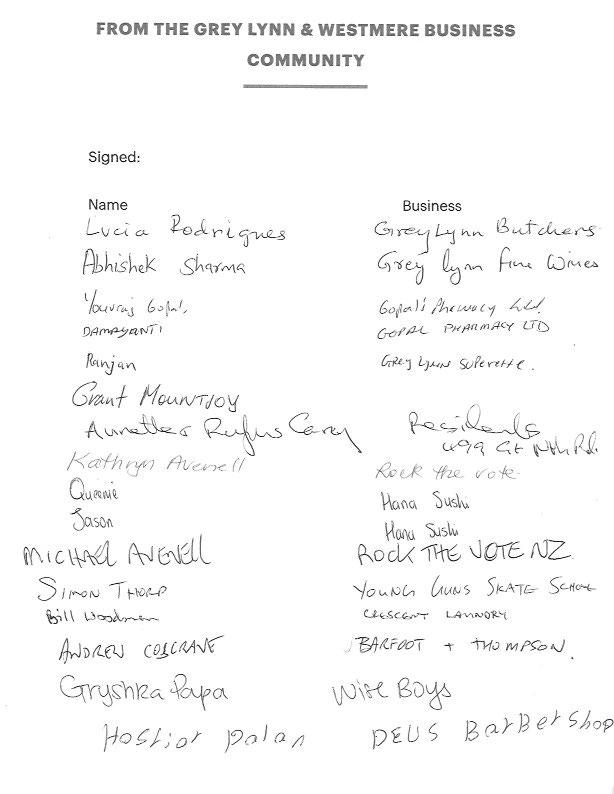 FROM THE GREY LYNN & WESTMERE BUSINESS
COMMUNITY
Signed:
Name Business
Lucia Rodrigues Grey Lynn Butchers
Abhishek Sharma Grey lynn fine Wines
Youvraj Gopal, Gopal's Pharmacy Ltd.
DAMAYANTI GOPAL PHARMACY LTD
Ranjan GREY LYNN SUPERETTE.
Grant MOUNTJOY
Rufus Carey Residents
499 Gt Nth Rd.
Kathryn Avenell Rock the vote
Queenie Hana Sushi
Jason Hana Sushi
MICHAEL AVENELL ROCK THE VOTE NZ
SIMON THORP YOUNG GUNS SKATE SCHOOL
Bill Woodman CRESCENT LAUNDRY
ANDREW COSGRAVE BARFOOT + THOMPSON.
Gryshka Papa Wise Boys
Palan DEUS BarBerShop